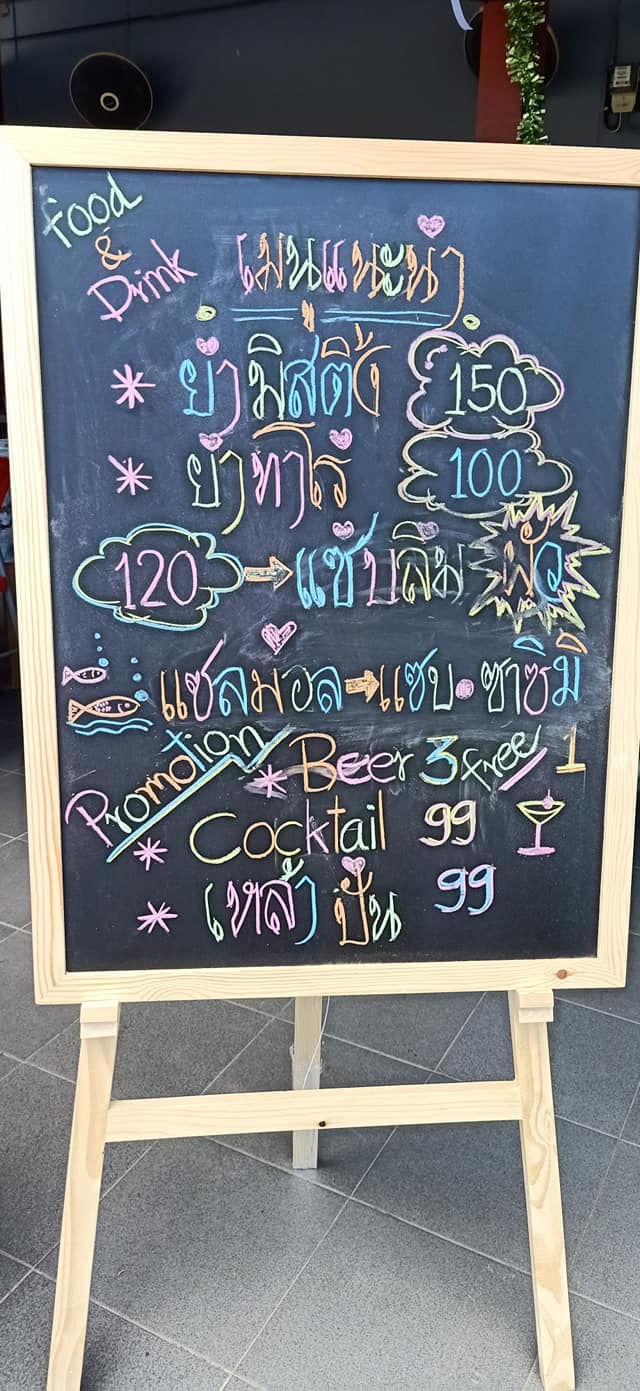 food
&
Drink
เมนูแนะนำ
* ยำมิสติ้ง 150
* ยำทาโร่ 100
120 → แซ่บลืม ผัว
แซลมอล → แซบ • ซาซิมิ
Promotion
* Beer 3 free 1
* Cocktail 99
* เหล้าปั่น 99